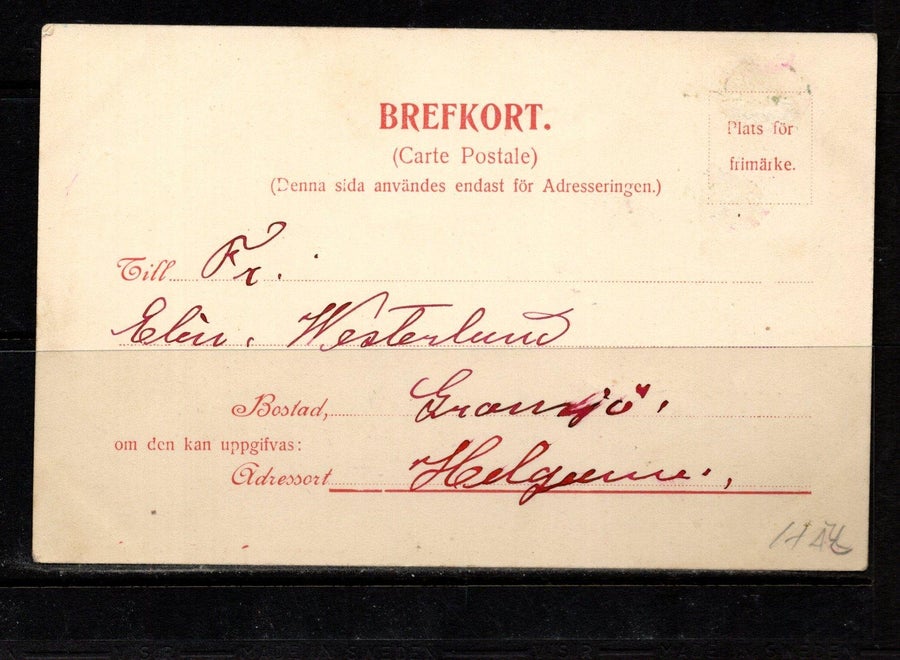 BREFKORT.
(Carte Postale)
(Denna sida användes endast för Adresseringen.)
Plats för
frimärke.
Till Fr.
Elin, Westerlund
Bostad,
om den kan uppgifvas:
Adressort